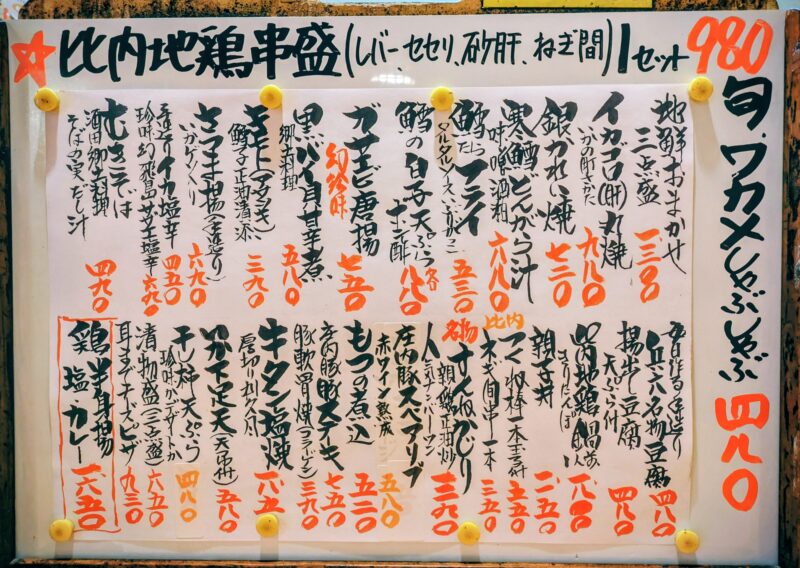 ☆比内地鶏串盛(レバー、セセリ、砂肝、ねぎ間)1セット980
旬、ワカメしゃぶしゃぶ 四八〇
地鮮おまかせ三点盛 一、三〇〇
イカゴロ(肝)丸焼 九八〇
いかの肝さかた
銀がれい焼 七三〇
寒鱈どんがら汁 六八〇
味噌酒粕
鱈フライ 五三〇
たら
鱈の白子天ぷら 各八八〇
ポン酢
ガサエビ唐揚 七五〇
幻珍味
黒バイ貝甘辛煮 五八〇
郷土料理
鱈子正油漬添 三九〇
さつま揚(手造り) 六九〇
いかゲソ入り
手造りイカ塩辛 四五〇
珍味幻飛島サザエ塩辛 六九〇
むきそば 四九〇
酒田郷土料理
そばの実だし汁
毎日作る手造り
兵六名物豆腐 四八〇
揚出し豆腐 四八〇
天ぷら付
比内地鶏鍋 一、八〇〇
きりたんぽ
親子丼 一、二五〇
比内
つくね棒一本
ねぎ間串一本 三五〇
名物
すんねかじり 一、三九〇
親鶏正油炒
人気ナンバーワン
庄内豚スペアリブ 五八〇
赤ワイン熟成
もつの煮込 五三〇
庄内豚豚ステーキ 七五〇
豚軟骨焼 三九〇
牛タン塩焼
厚切り
いか下足天(天丼) 五八〇
干し柿天ぷら 四八〇
珍味かデザートか
漬物盛(三点盛) 六五〇
耳までチーズピザ 九三〇
鶏半身揚 一、六五〇
塩・カレー